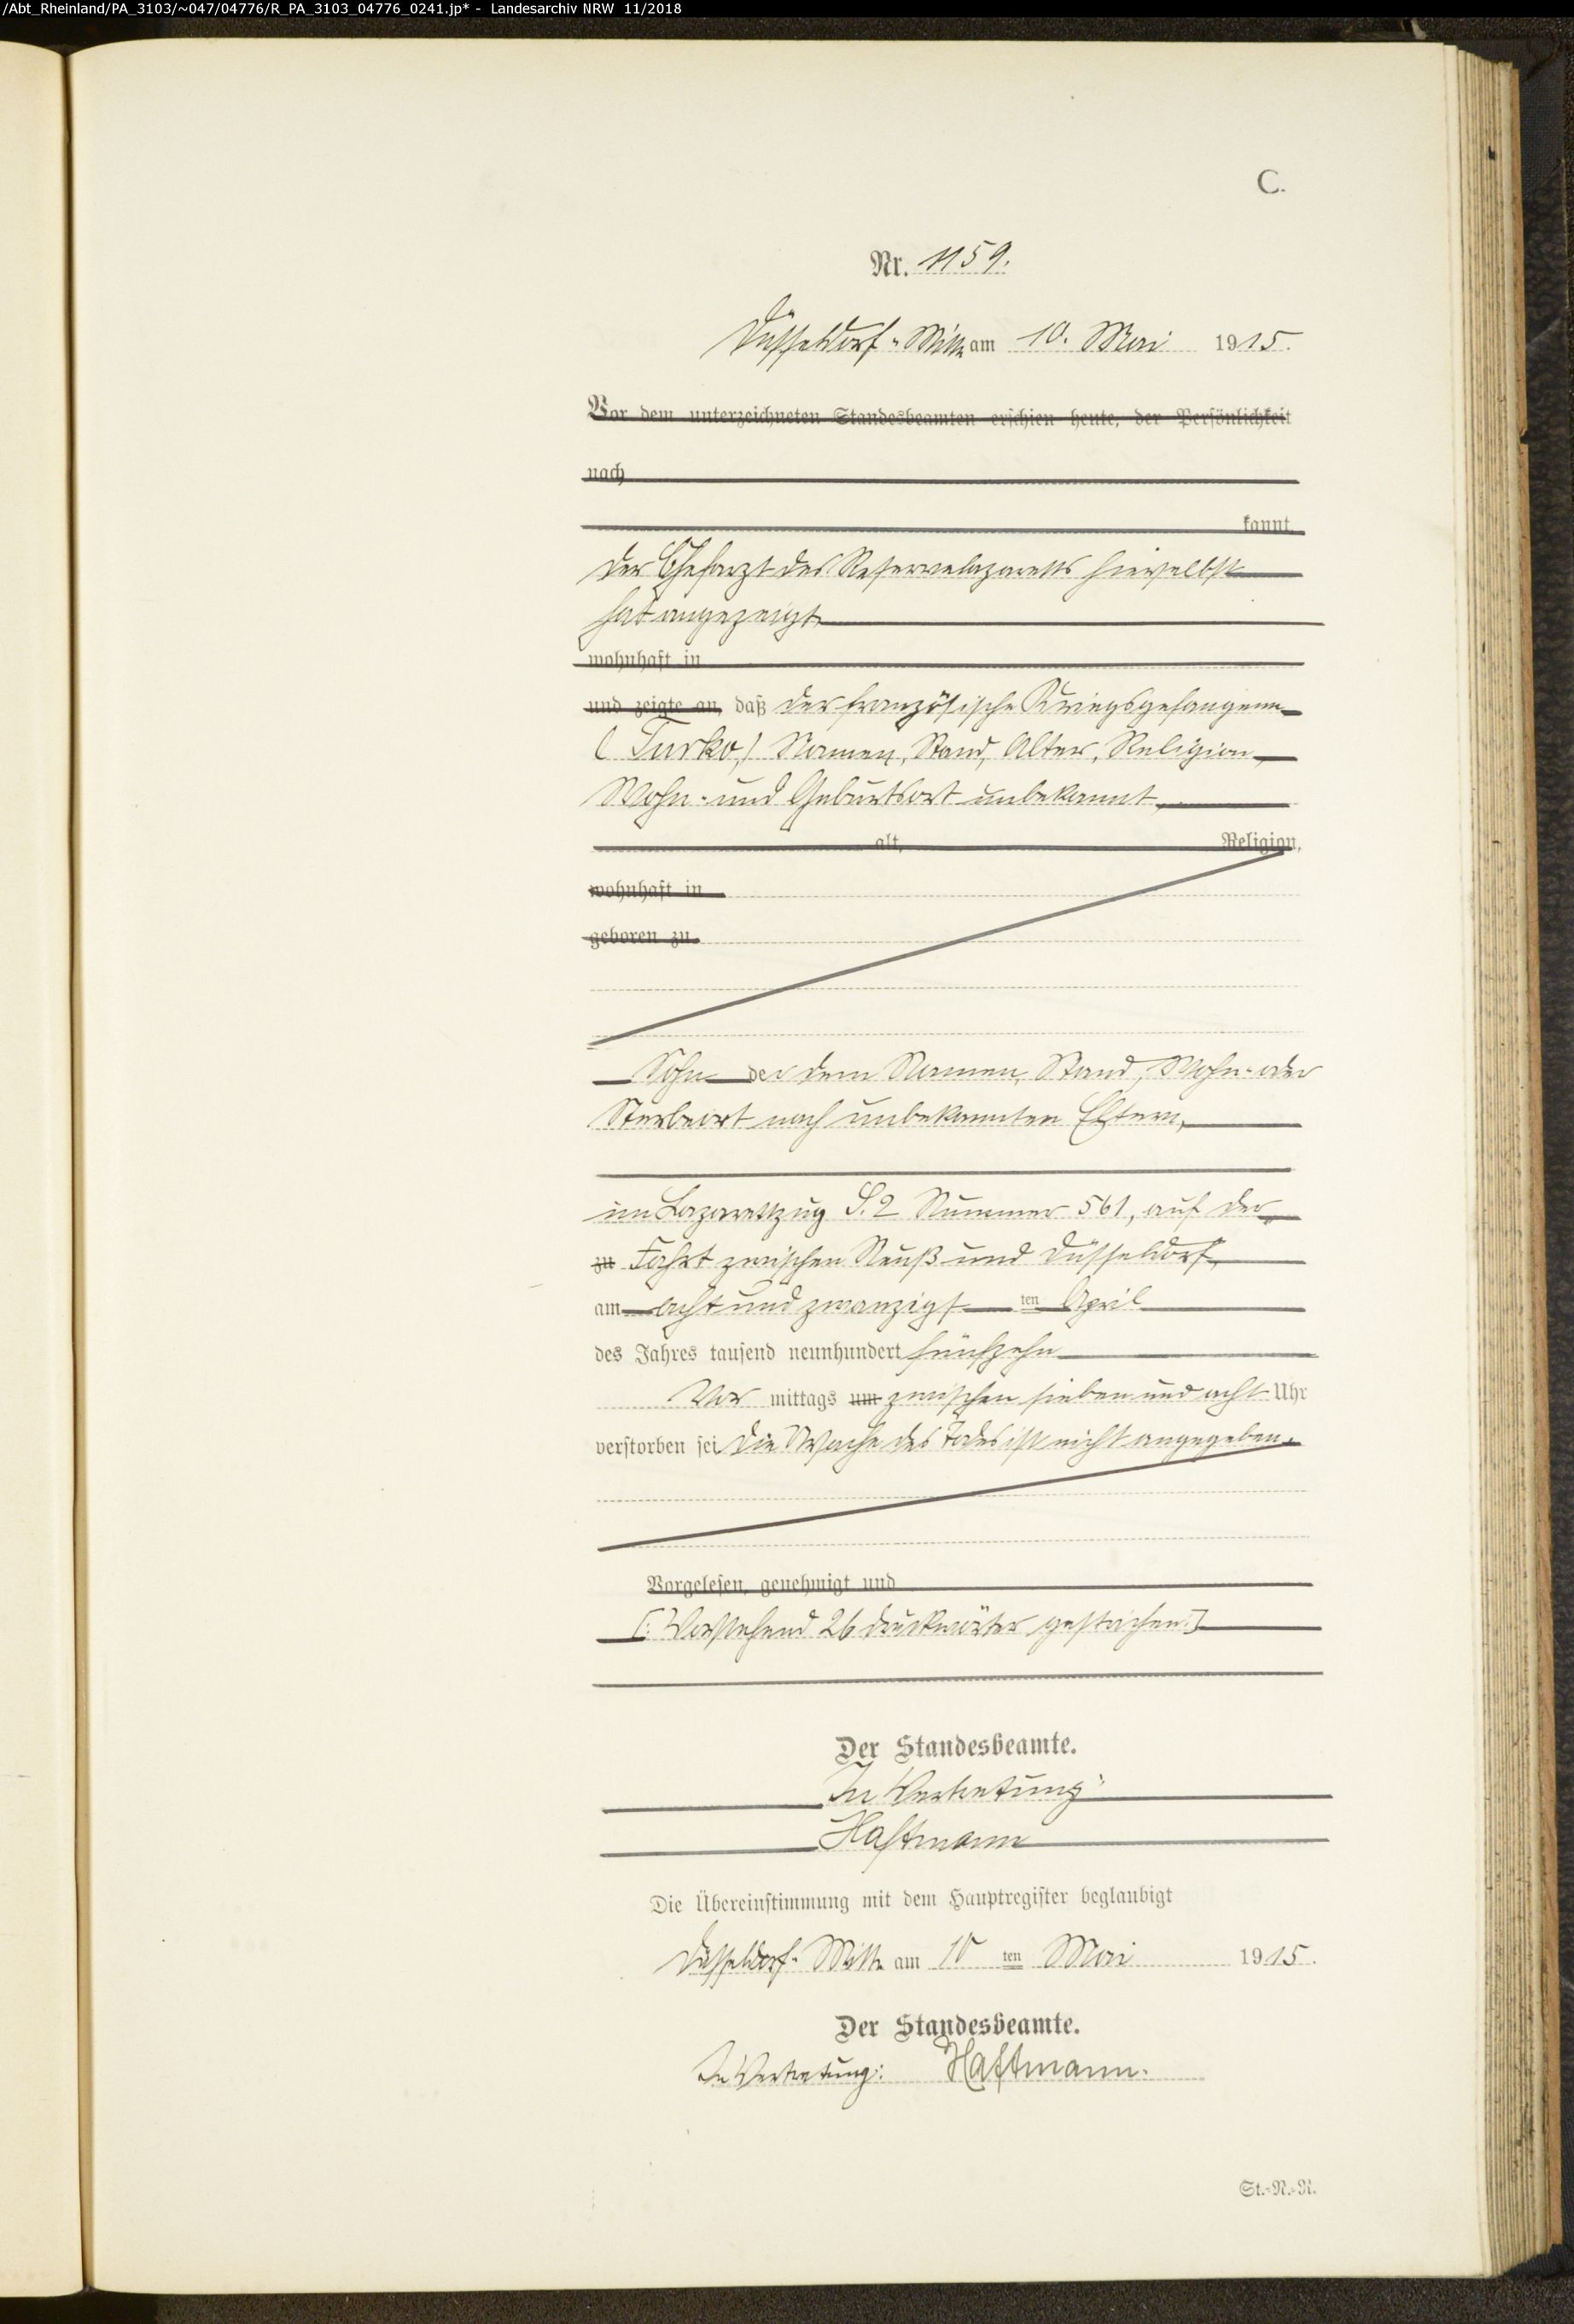 /Abt_Rheinland/PA_3103/~047/04776/R_PA_3103_04776_0241.jp* - Landesarchiv NRW 11/2018
C.
Nr. 1159.
Düsseldorf-Mitte am 10. Mai 1915.
Vor dem unterzeichneten Standesbeamten erschien heute, der Persönlichkeit
nach
kannt,
der Chefarzt des Reservelazaretts hierselbst
hat angezeigt,
wohnhaft in
und zeigte an, daß der französische Kriegsgefangene
(Turko,) Namen, Stand, Alter, Religion,
Wohn- und Geburtsort unbekannt,
alt, Religion,
wohnhaft in
geboren zu
Sohn der dem Namen, Stand, Wohn- oder
Sterbeort nach unbekannten Eltern,
im Lazarettzug S.2 Nummer 561, auf der
zu Fahrt zwischen Neuß und Düsseldorf,
am acht und zwanzigsten April
des Jahres tausend neunhundert fünfzehn
Vor mittags um zwischen sieben und acht Uhr
verstorben sei. Die Ursache des Todes ist nicht angegeben.
Vorgelesen, genehmigt und
[: Vorstehend 26 Druckwörter gestrichen:]
Der Standesbeamte.
In Vertretung:
Haftmann
Die Übereinstimmung mit dem Hauptregister beglaubigt
Düsseldorf-Mitte am 10 ten Mai 1915.
Der Standesbeamte.
In Vertretung: Haftmann.
St.-N.-R.